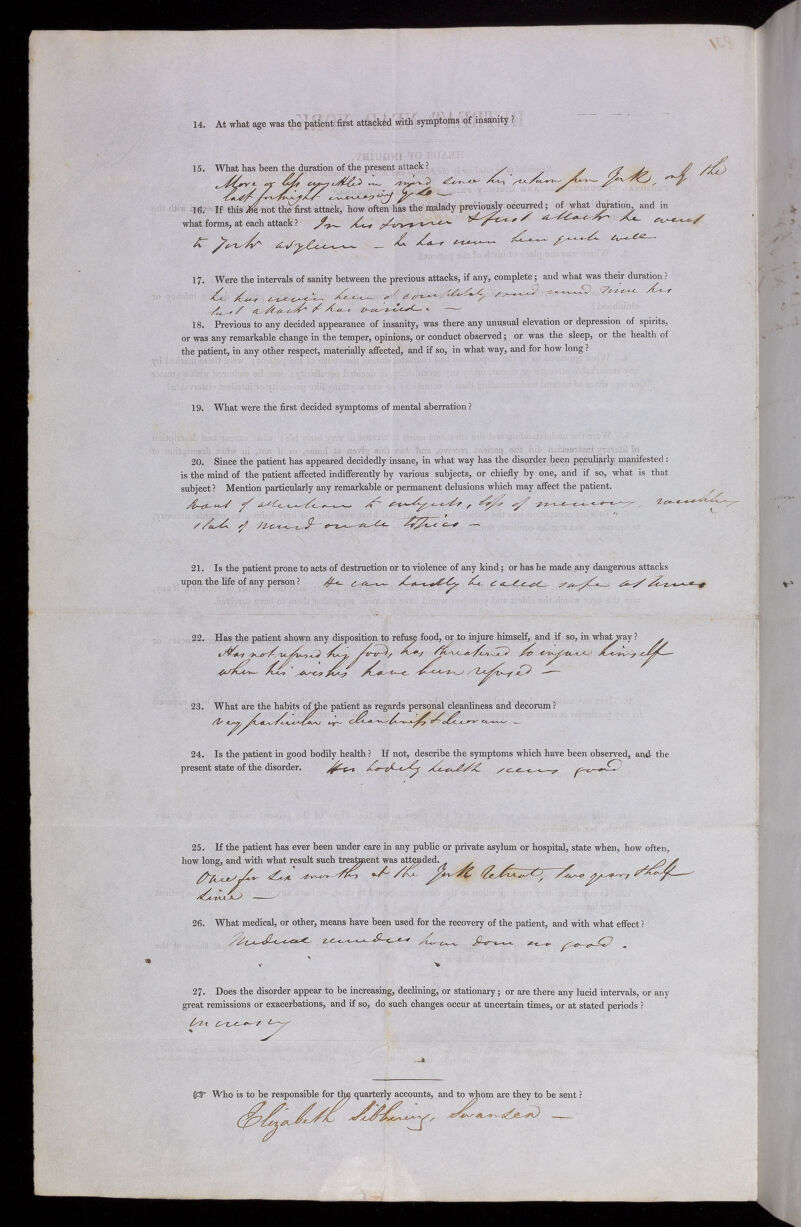 14. At what age was the patient first attacked with symptoms of insanity?
15. What has been the duration of the present attack?
More or less unsettled in mind since his return from York, only the
last fortnight increasingly so —
16. If this be not the first attack, how often has the malady previously occurred; of what duration, and in
what forms, at each attack? In his former & first attack he went
to York asylum — he has never been quite well
17. Were the intervals of sanity between the previous attacks, if any, complete; and what was their duration?
he has never been of completely sound mind since his
last attack & has varied. —
18. Previous to any decided appearance of insanity, was there any unusual elevation or depression of spirits,
or was any remarkable change in the temper, opinions, or conduct observed; or was the sleep, or the health of
the patient, in any other respect, materially affected, and if so, in what way, and for how long?
19. What were the first decided symptoms of mental aberration?
20. Since the patient has appeared decidedly insane, in what way has the disorder been peculiarly manifested:
is the mind of the patient affected indifferently by various subjects, or chiefly by one, and if so, what is that
subject? Mention particularly any remarkable or permanent delusions which may affect the patient.
Want of attention to subjects, loss of memory, rambling
state of mind on all topics —
21. Is the patient prone to acts of destruction or to violence of any kind; or has he made any dangerous attacks
upon the life of any person? He can hardly be called safe at times
22. Has the patient shown any disposition to refuse food, or to injure himself, and if so, in what way?
Has not refused his food, has threatened to injure himself
when his wishes have been refused —
23. What are the habits of the patient as regards personal cleanliness and decorum?
Very particular in cleanliness & decorum —
24. Is the patient in good bodily health? If not, describe the symptoms which have been observed, and the
present state of the disorder. His bodily health seems good
25. If the patient has ever been under care in any public or private asylum or hospital, state when, how often,
how long, and with what result such treatment was attended.
Once for six months at the York Retreat, two years & half
since —
26. What medical, or other, means have been used for the recovery of the patient, and with what effect?
Medical remedies have done no good.
27. Does the disorder appear to be increasing, declining, or stationary; or are there any lucid intervals, or any
great remissions or exacerbations, and if so, do such changes occur at uncertain times, or at stated periods?
increasing
☞ Who is to be responsible for the quarterly accounts, and to whom are they to be sent?
Elizabeth Sibbering, Swansea —